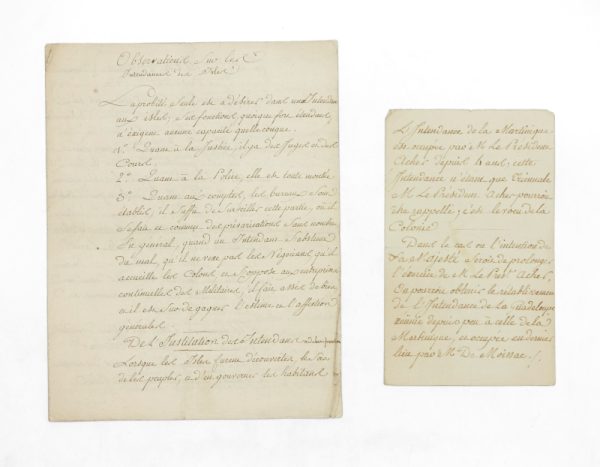 Observations sur les
Intendances des Isles
La probité seule est a desirer dans un Intendant
aux isles, ses fonctions quoique fort étendues
n'exigent aucune capacité quelleconque.
1º Quant à la Justice, il y a des Juges et des
Cours.
2º Quant à la Police, elle est toute
3º Quant aux comptes, les bureaux sont
établis, il suffit de surveiller cette partie, où il
se fait et commet des prévarications sans nombre
En general, quand un Intendant s'abstient
du mal, qu'il ne voie pas les Négotiants qu'il
accueille les Colons et s'oppose aux entreprises
continuelles des Militaires, il fait assés de bien
et il est sur de gagner l'estime et l'affection
generales.
De l'Institution des Intendans
Lorsque les Isles furent découvertes, le soin
de les peupler, et d'en gouverner les habitans
L'Intendance de la Martinique
est occupée par M. Le President
Acher depuis 4 ans; cette
Intendance n'étant que
M. Le President Acher pourroit
être rappellé; c'est le voeu de la
Colonie
Dans le cas ou l'intention de
Sa Majesté seroit de prolonger
l'exercice de M. Le Pres. Acher,
On pourroit obtenir le rétablissement
de l'Intendance de la Guadeloupe
réunie depuis peu à celle de la
Martinique, et occupée en dernier
lieu par M. De Moissac ./.